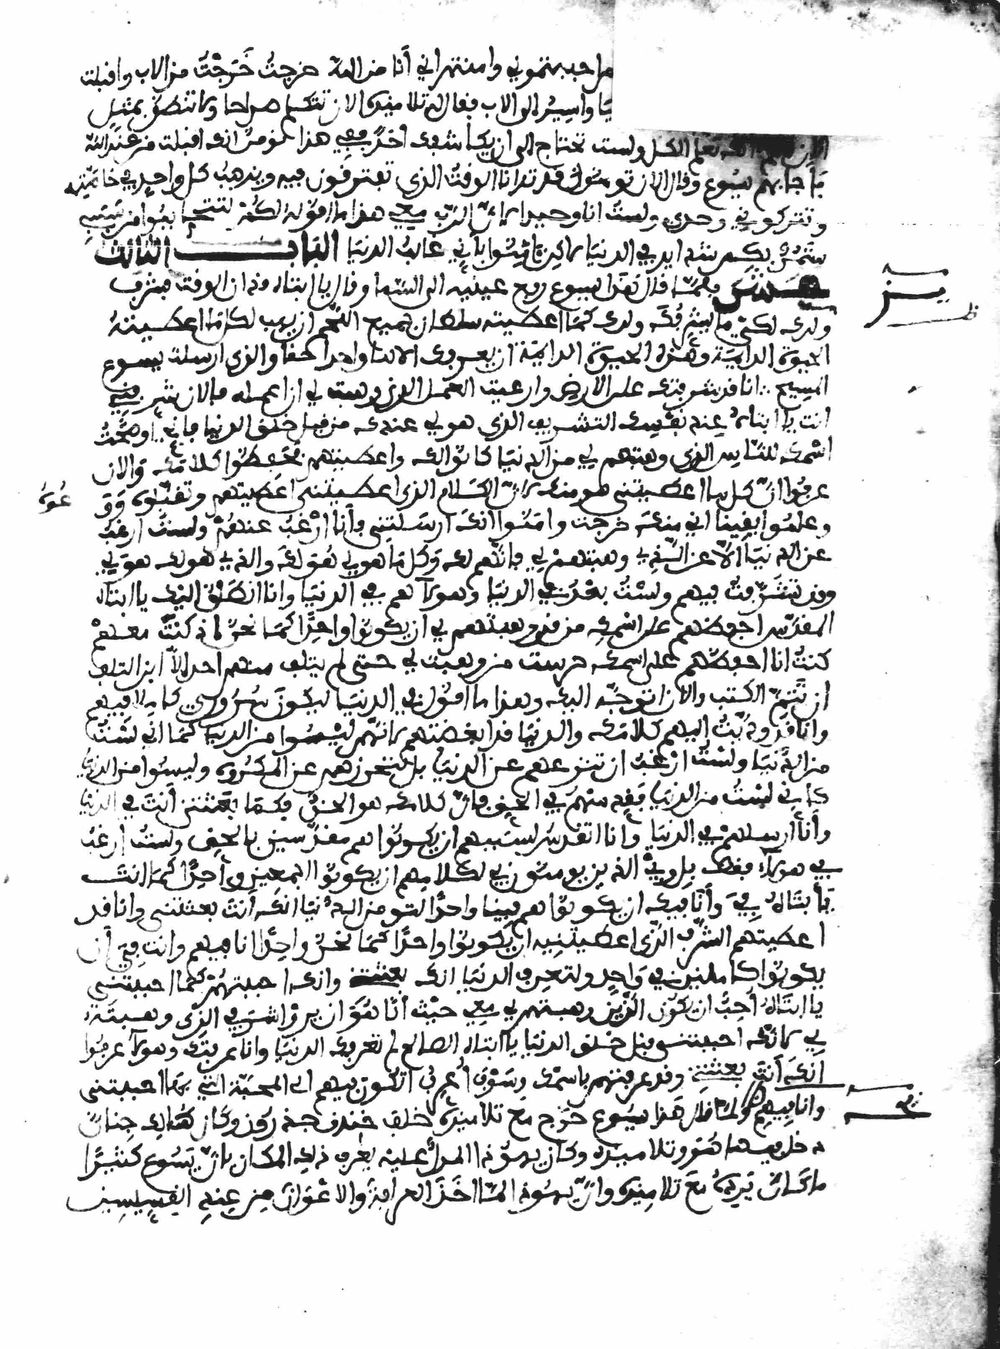 من احببتموني وامنتم اني أنا من الله خرجتُ خَرَجْتُ من الاب واقبلت
واسير الى الاب فقال له تلاميذه الان تتكلم صراحا ولا تنطق بمثل
الان نعلم انك تعلم الكل ولست تحتاج الى ان يكاشفك احد ففي هذا نومن انك اقبلت من عند الله
فاجابهم يسوع وقال الان تومنون قد تدانا الوقت الذي تفترقون فيه ويذهب كل واحد في خاصيته
وتتركوني وحدي ولست انا وحيدا لان الرب معي هذا ما اقوله لكم
ستمر بكم شدايد في الدنيا لاكن تامنوا باني غالب الدنيا الباب الثالث
فلما قال هذا يسوع رفع عينيه الى السما وقال يا ابتاه قد ان الوقت فشرف
ولدك لكي ما يشرفك ولدك كما اعطيته سلطان جميع اللحم ان يهب لكل ما اعطيته
الحيوة الدايمة وهذه الحيوة الدايمة ان يعرفوك الاها واحدا حقا والذي ارسلت يسوع
المسيح انا قد شرفتك على الارض وارعيت العمل الذي وهبت لي ان اعمله فالان شرفني
انت يا ابتاه عند نفسك التشريف الذي هو لي عندك من قبل خلق الدنيا فاني اوضحت
اسمك للناس الذي وهبتهم لي من الدنيا كانوا لك واعطيتهم فحفظوا كلامك والان
عرفوا ان كل ما اعطيتني هو منك لان الكلام الذي اعطيتني اعطيتهم وتقبلوه
وعلموا يقينا اني منك خرجت وامنوا انك ارسلتني وأنا ارْغبُ عنهمْ ولستُ ارغبُ
عن الدنيا الا عن الذي وهبتهم لي فانهم لك وكل ما هو لي هو لك والذي هو لك هو لي
وقد تشرفت فيهم ولست بعد في الدنيا وهولا هم في الدنيا وانا انطلق اليك يا ابتاه
المقدس احفظهم على اسمك من وهبتهم لي ان يكونوا واحدا كما نحن اذ كنت معهم
كنت انا احفظهم على اسمك حرست من وهبت لي حتى لم يتلف منهم احد الا ابن التلف
ان تتم الكتب والان اتوجه اليك وهذا ما اقول في الدنيا ليكون سروري كاملا فيهم
وانا قد وديت اليهم كلامك والدنيا قد ابغضتهم لانهم ليسوا من الدنيا كما اني لست
من الدنيا ولست ارغب ان تنزعهم عن الدنيا بل تحرزهم عن المكروه وليسوا من الدنيا
كاني لست من الدنيا فقدسهم في الحق فان كلامك هو الحق فكما بعثتني انت في الدنيا
وأنا أرسلهم في الدنيا وأنا اتقدس لسببهم ان يكونوا هم مقدسين بالحق ولست ارغب
في هولاء فقط بل وفي الذين يومنون بي لكلامهم ان يكونوا اجمعين واحدا كما انت
يا ابتاه في وأنا فيك ان يكونوا هم فينا واحدا لتومن الدنيا انك أنت بعثتني وانا قد
اعطيتهم الشرف الذي اعطيتنيه ان يكونوا واحدا كما نحن واحد انا فيهم وانت في أن
يكونوا كاملين في واحد ولتعرف الدنيا انك بعثتني وانك احببتهم كما احببتني
يا ابتاه أحب ان يكون الذين وهبتهم لي معي حيث أنا هو ان يروا شرفي الذي وهبته
لي لانك احببتني قبل خلق الدنيا يا ابتاه الصالح لم تعرفك الدنيا وانا عرفتك وهولا عرفوا
انك أنت بعثتني وقد عرفتهم باسمك وسوف اعرفه لتكون فيهم المحبة التي بها احببتني
وانا فيهم ولما قال هذا يسوع خرج مع تلاميذه خلف خندف جدرون وكان هنالك جنان
دخل فيها هو وتلاميذه وكان يهوذا المدل عليه يعرف ذلك المكان لان يسوع كثيرًا
ما كان يَرِدُه مَعَ تلاميذه وان يهوذا لما اخذ العرافة والاعوان من عند القسيسين